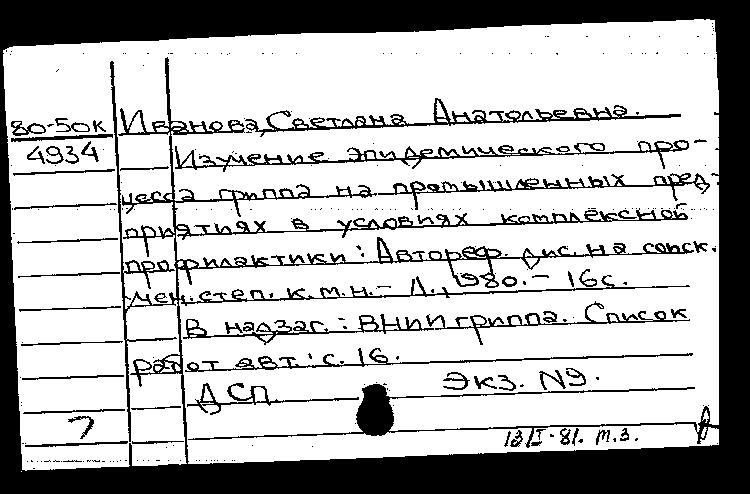 80-50к Иванова, Светлана Анатольевна.
4934 Изучение эпидемического про-
цесса гриппа на промышленных пред-
приятиях в условиях комплексной
профилактики: Автореф. дис. на соиск.
учен. степ. к.м.н. - Л., 1980. - 16с.
В надзаг.: ВНИИ гриппа. Список
работ авт.: с. 16.
ДСП Экз. N9.
7
13/I-81. т.з.